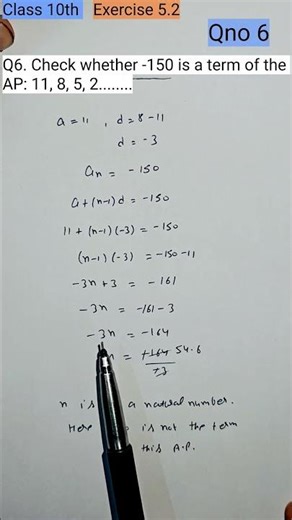 Class 10th Exercise 5.2
Qno 6
Q6. Check whether -150 is a term of the
AP: 11, 8, 5, 2........
a = 11 , d = 8-11
d = -3
an = -150
a+(n-1)d = -150
11 + (n-1)(-3) = -150
(n-1)(-3) = -150-11
-3n+3 = -161
-3n = -161-3
-3n = -164
n = +164 54.6
+3
n is a natural number.
Here is not the term
this A.P.